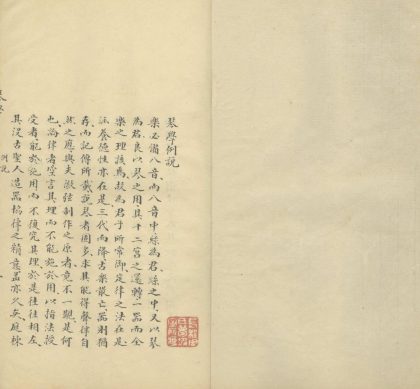 琴學例說
樂必備八音而八音中絲為君絲之中又以琴
為君良以琴之用具十二宮之運轉一器而全
樂之理該焉故為君子所常御定律之法在是
涵養德性亦在是三代而降古樂散亡器判猶
存而記傳所載說琴者固多求其能得聲律自
然之應與夫徽弦制作之原者竟不一覩是何
也論律者空言其理而不能施於用以指法授
受者能於施用而不復究其理於是往往相左
其没古聖人造器協律之精意蓋亦久矣庭棟
例說